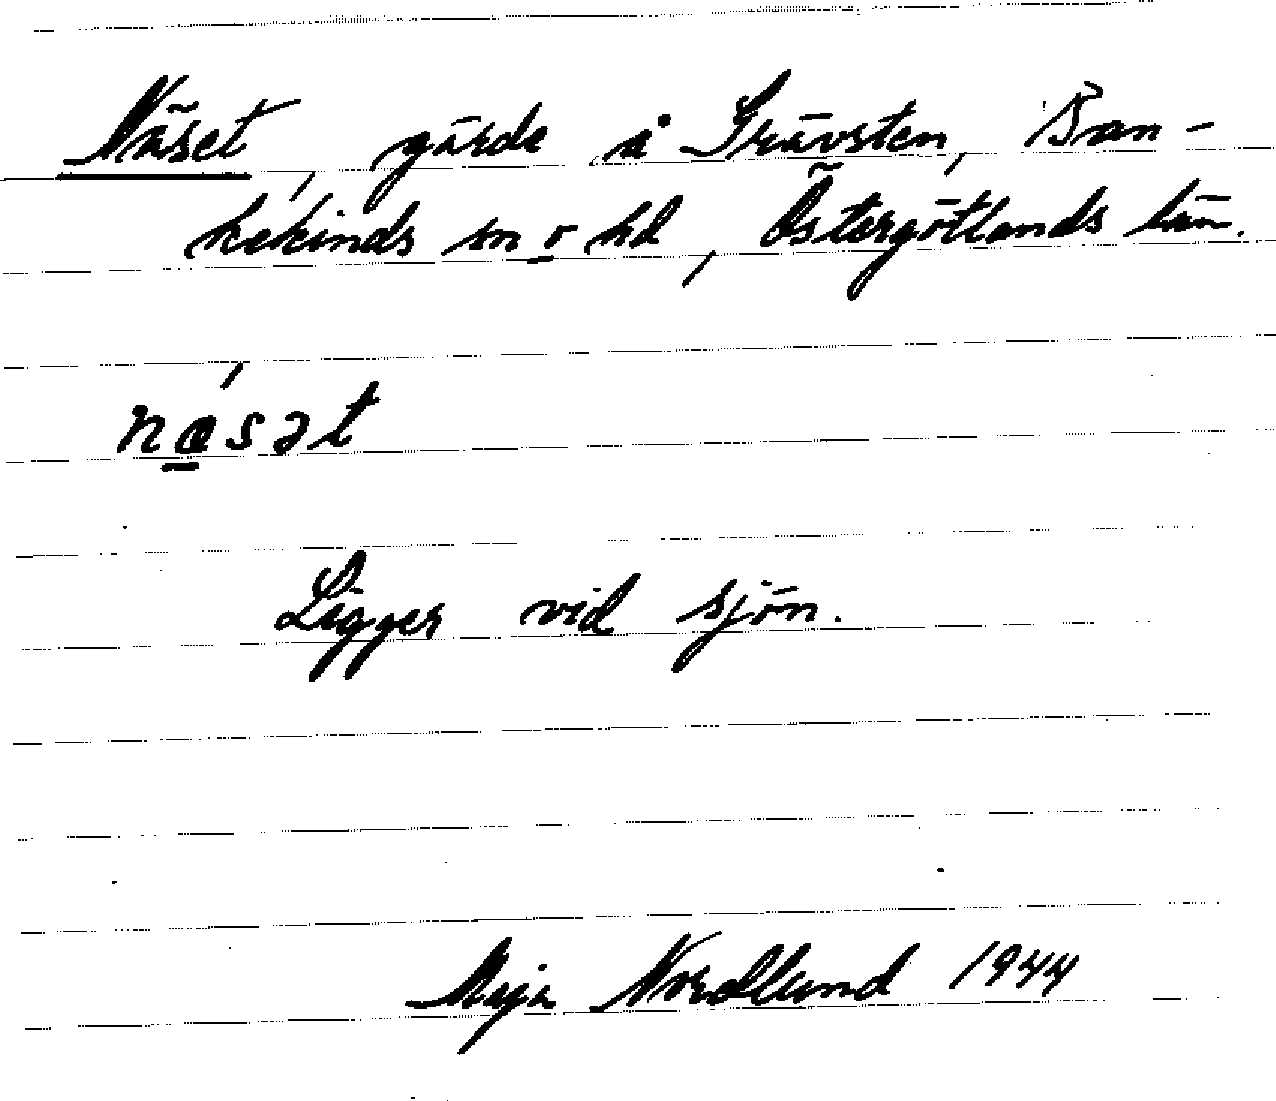 Näset, gärde å Grävsten, Ban-
kekinds sn o hd, Östergötlands län.
nǽsət
Ligger vid sjön.
Maja Nordlund 1944